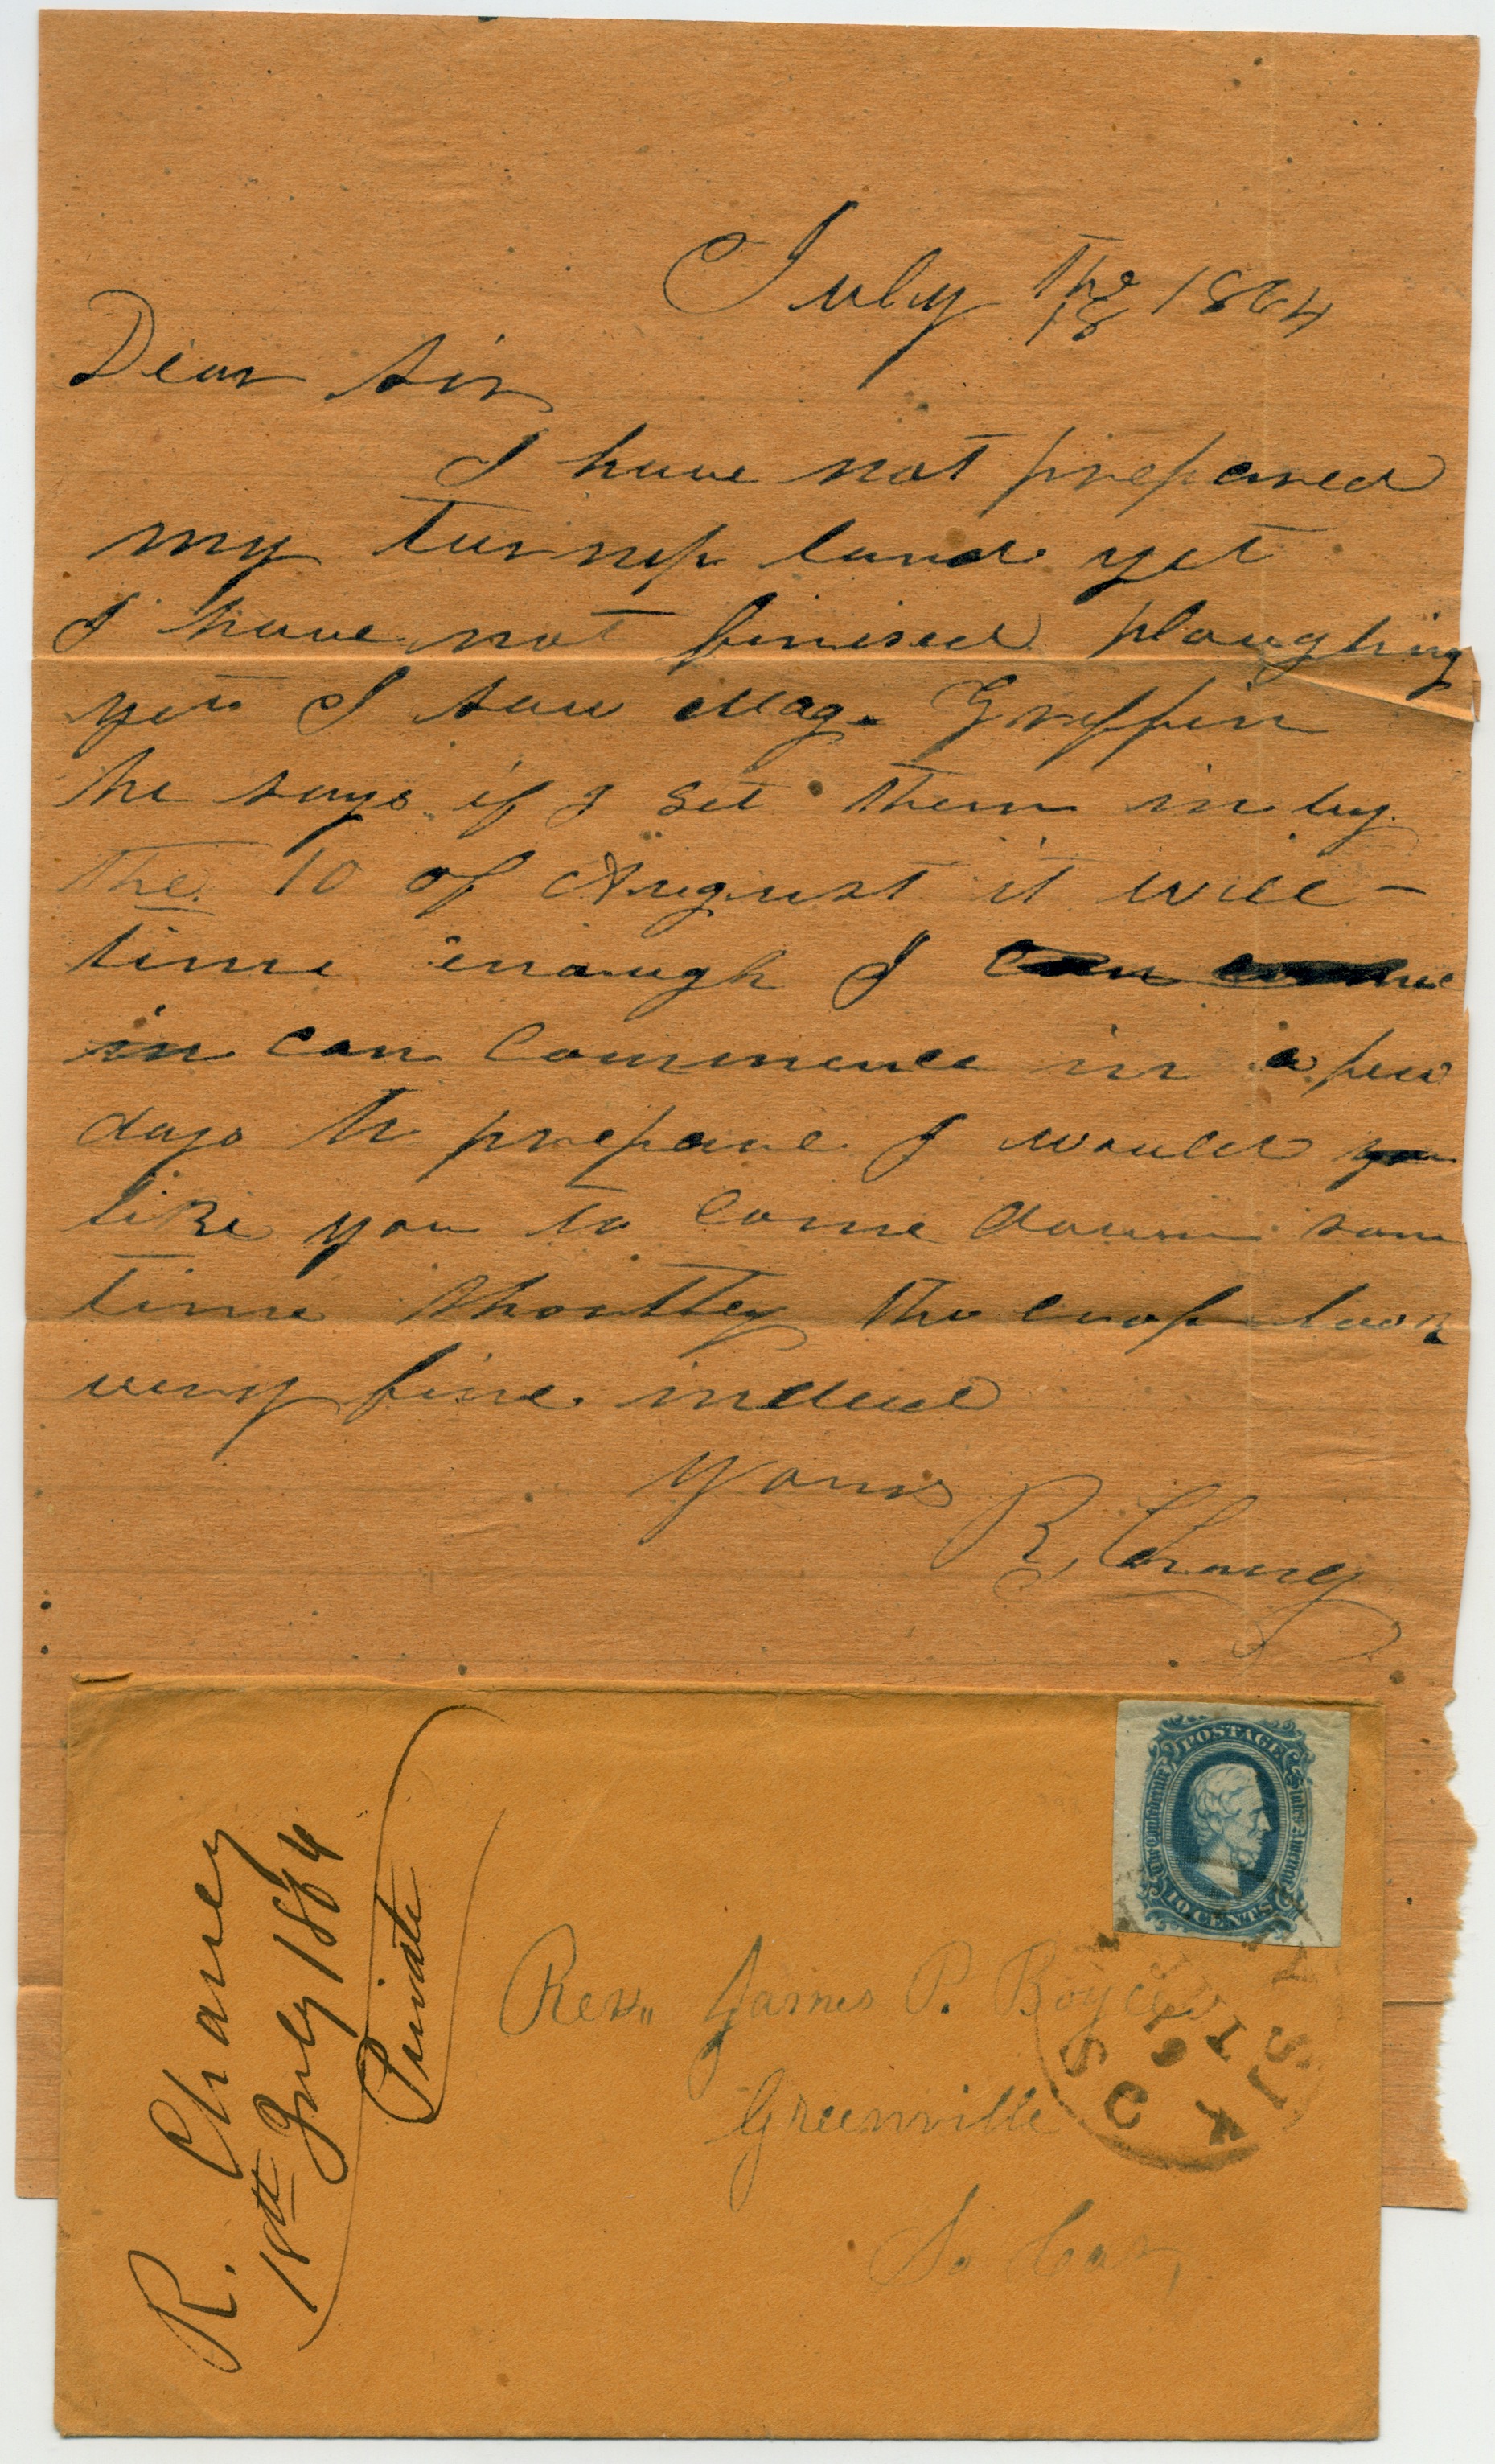 July the 18 1864
Dear Sir
I have not prepared
my turnip land yet
I have not finised ploughing
yet I saw Mag. Griffin
he says if I set them in by
the 10 of August it will
time enough I can
in can commence in a few
days to prepare I would you
like you to come down som
time shortley the crop look
very fine indeed
Yours
R, Chaney
R. Chaney
18th July 1864
Private
POSTAGE
The Confederate States of America
10 CENTS
Rev. James P. Boyce
Greenville
So Car,
19
S C